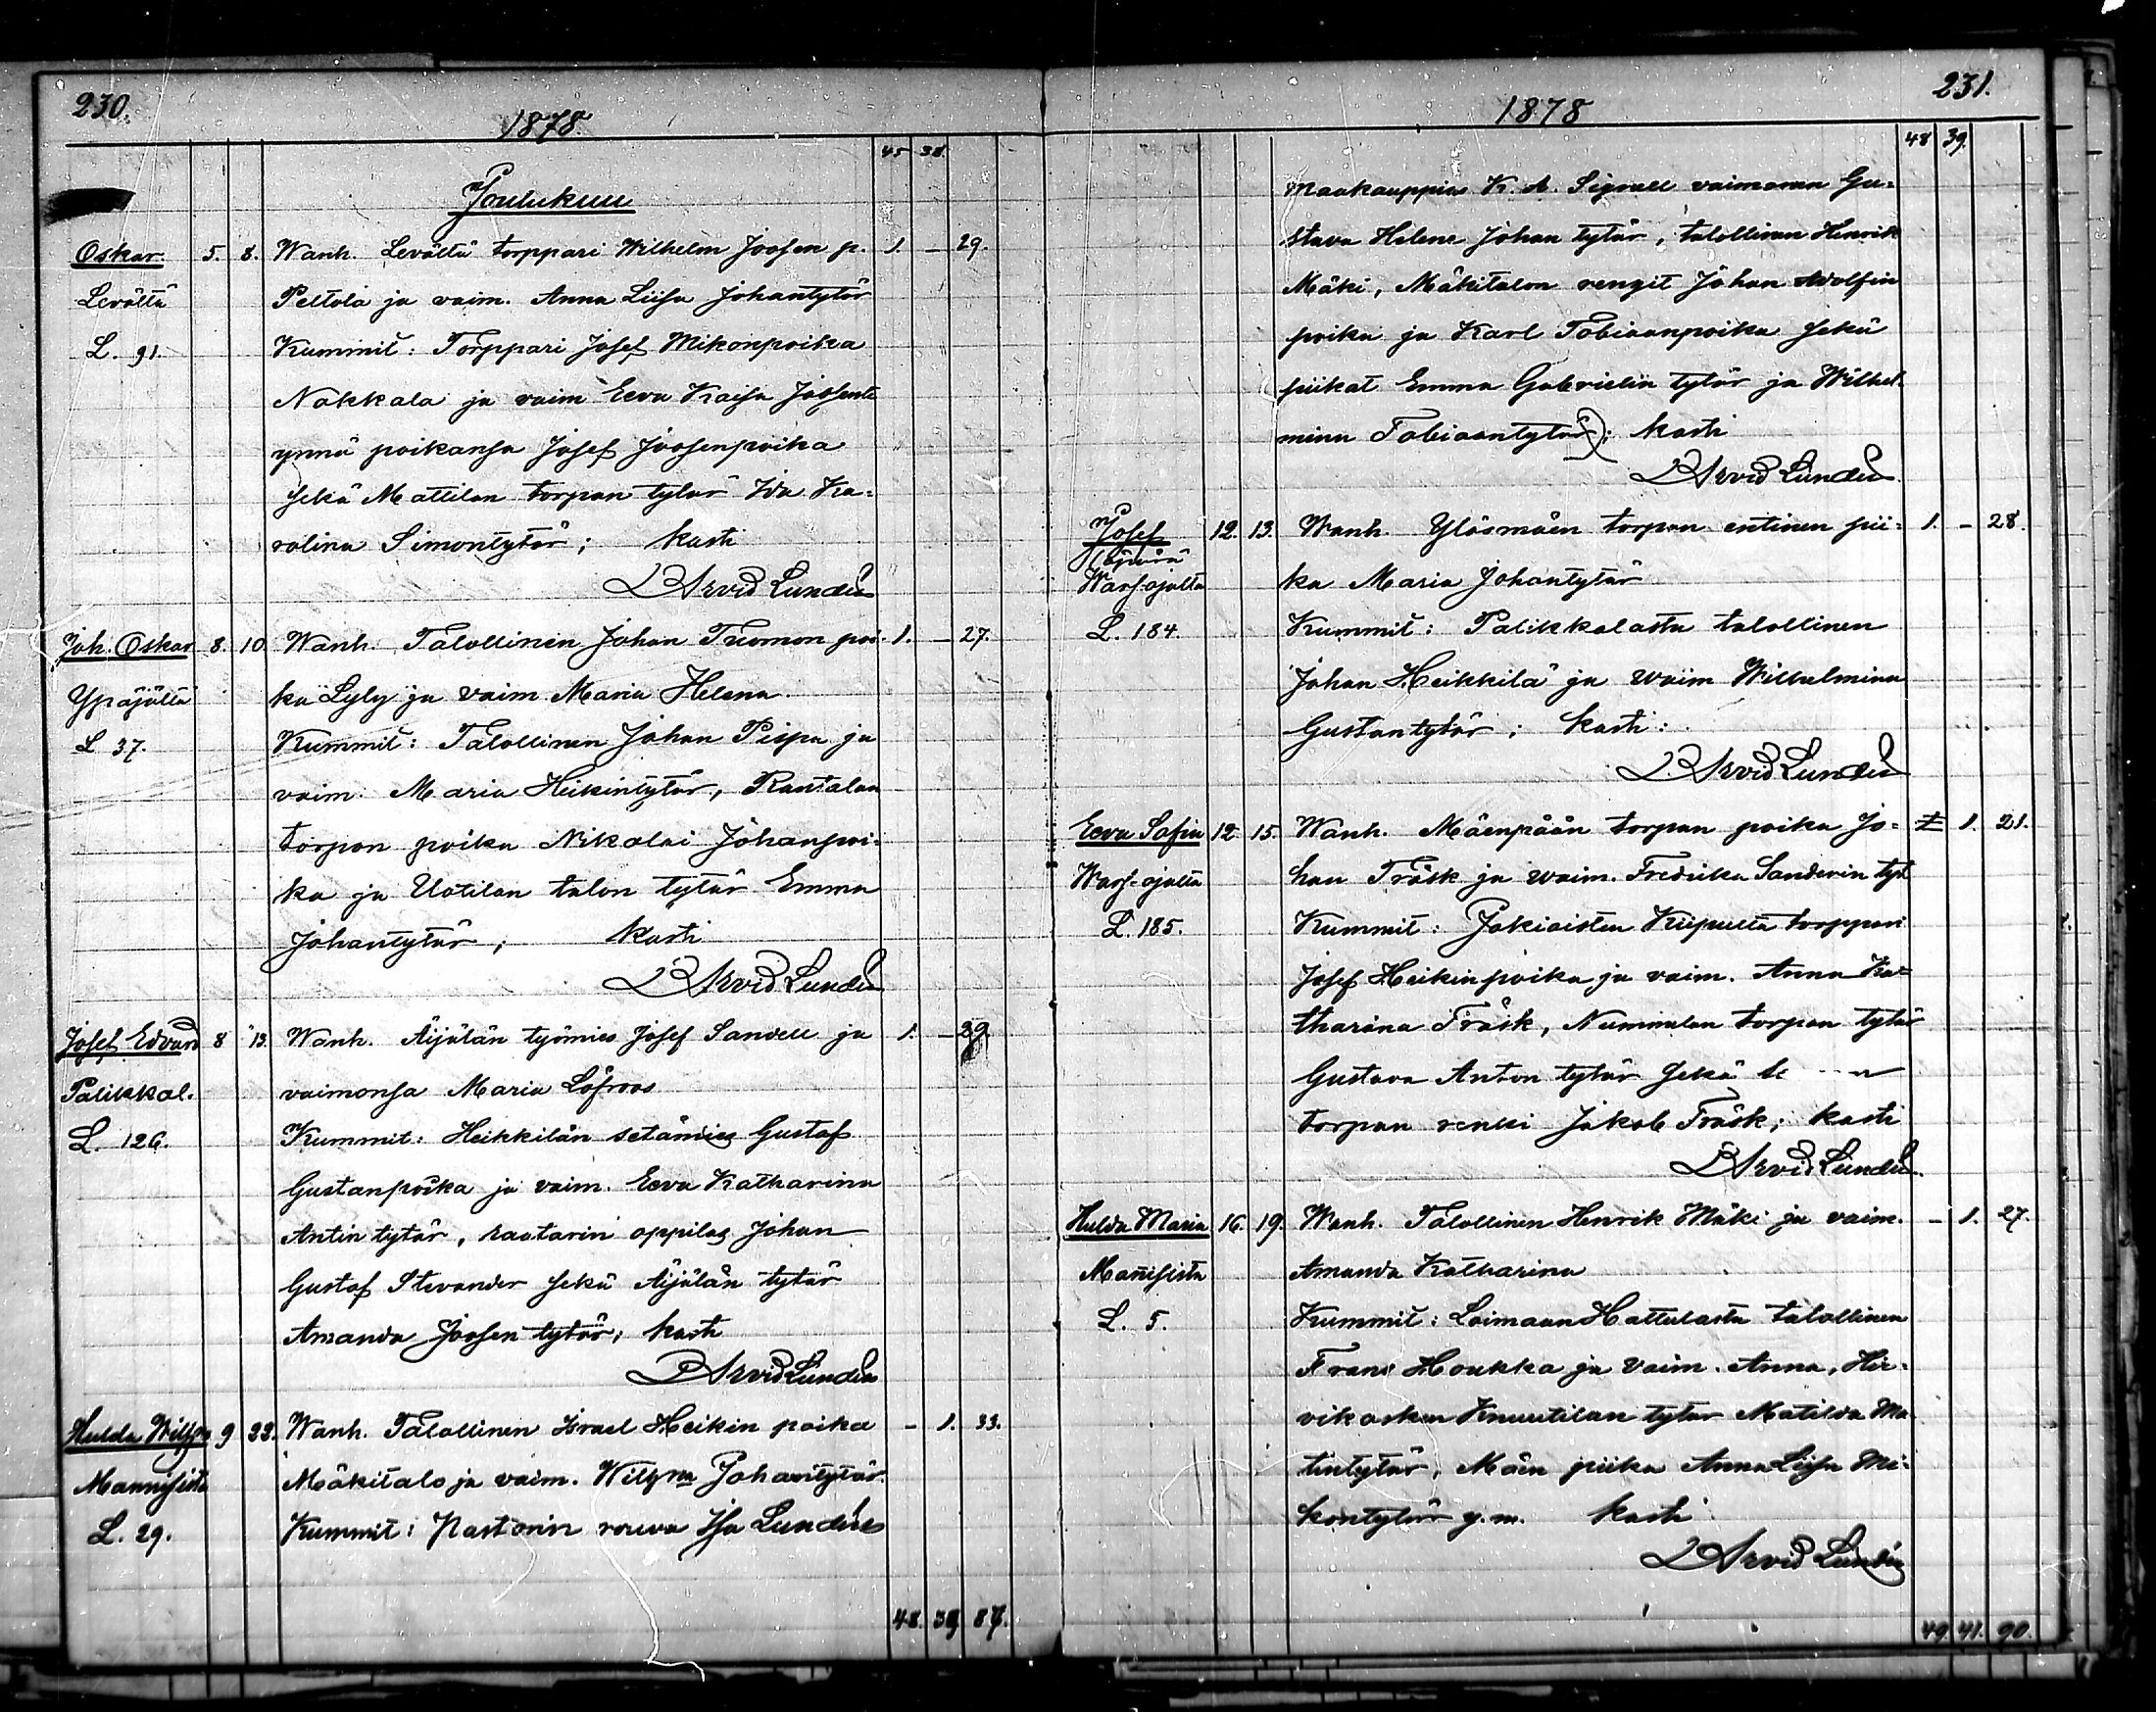 230.
1878.
45 38.
Joulukuu
Oskar 5. 8. Wanh. Levältä torppari Wilhelm Joosen p. 1. — 29.
Levältä Peltola ja vaim. Anna Liisa Johantytär
L. 91. Kummit: Torppari Josef Mikonpoika
Nokkala ja vaim Eeva Kaisa Joosent:
ynnä poikansa Josef Joosenpoika
sekä Mattilan torpan tytär Ida Ka-
rolina Simontytär; kasti
Arvid Lundén
Joh. Oskar 8. 10. Wanh. Talollinen Johan Tuomon poi- 1. — 27.
Ypäjältä ka Lyly ja vaim. Maria Helena.
L 37. Kummit: Talollinen Johan Piipa ja
vaim. Maria Heikintytär, Rantalan
torpan poika Nikolai Johanpoi-
ka ja Uotilan talon tytär Emma
Johantytär; kasti
Arvid Lundén
Josef Edvard 8 13. Wanh. Äijälän työmies Josef Sandell ja 1. — 29.
Palikkal. vaimonsa Maria Löfroos
L. 126. Kummit: Heikkilän setämies Gustaf
Gustanpoika ja vaim. Eeva Katharina
Antin tytär, raatarin oppilas Johan
Gustaf Stevander sekä Äijälän tytär
Amanda Joosen tytär; kasti
Arvid Lundén
Hulda Wilhma 9 23. Wanh. Talollinen Israel Heikin poika — 1. 33.
Mannisista Mäkitalo ja vaim. Wilhma Johantytär.
L. 29. Kummit: Pastorin rouva Ida Lundén
48. 39 87.
231.
1878
48 39.
Maakauppias K. A. vaimonen Gu-
stava Helena Johan tytär, talollinen Henrik
Mäki, Mäkitalon rengit Johan Adolfin
poika ja Karl Tobiaanpoika sekä
piikat Emma Gabrielin tytär ja Wilhel-
mina Tobiaantytär); kasti
Arvid Lundén
Josef 12. 13. Wanh. Yläsmäen torpan entinen pii- 1. — 28.
(äpärä)
Wars-ojalta ka Maria Johantytär
L. 184. Kummit: Palikkalasta talollinen
Johan Heikkilä ja waim Wilhelmina
Gustantytär; kasti:
Arvid Lundén
Eeva Sofia 12 15. Wanh. Mäenpään torpan poika Jo- 1 1. 21.
Wars-ojalta han Träsk ja waim. Fredrika Sanderin tyt
L. 185. Kummit: Jokioisten Kiipulta torppari
Josef Heikinpoika ja vaim. Anna Ka-
tharina Träsk, Nummelan torpan tytär
Gustava Anton tytär sekä s. — n
torpan renki Jakob Träsk; kasti
Arvid Lundén.
Hulda Maria 16. 19. Wanh. Talollinen Henrik Mäki ja vaim. — 1. 27.
Mannisista Amanda Katharina
L. 5. Kummit: Loimaan Hattulasta talollinen
Frans Houkka ja vaim. Anna, Hir-
vikosken Knuutilan tytär Matilda Ma-
tintytär, Mäen piika Anna Liisa Mi-
kontytär y.m. kasti
Arvid Lundén
49. 41. 90.